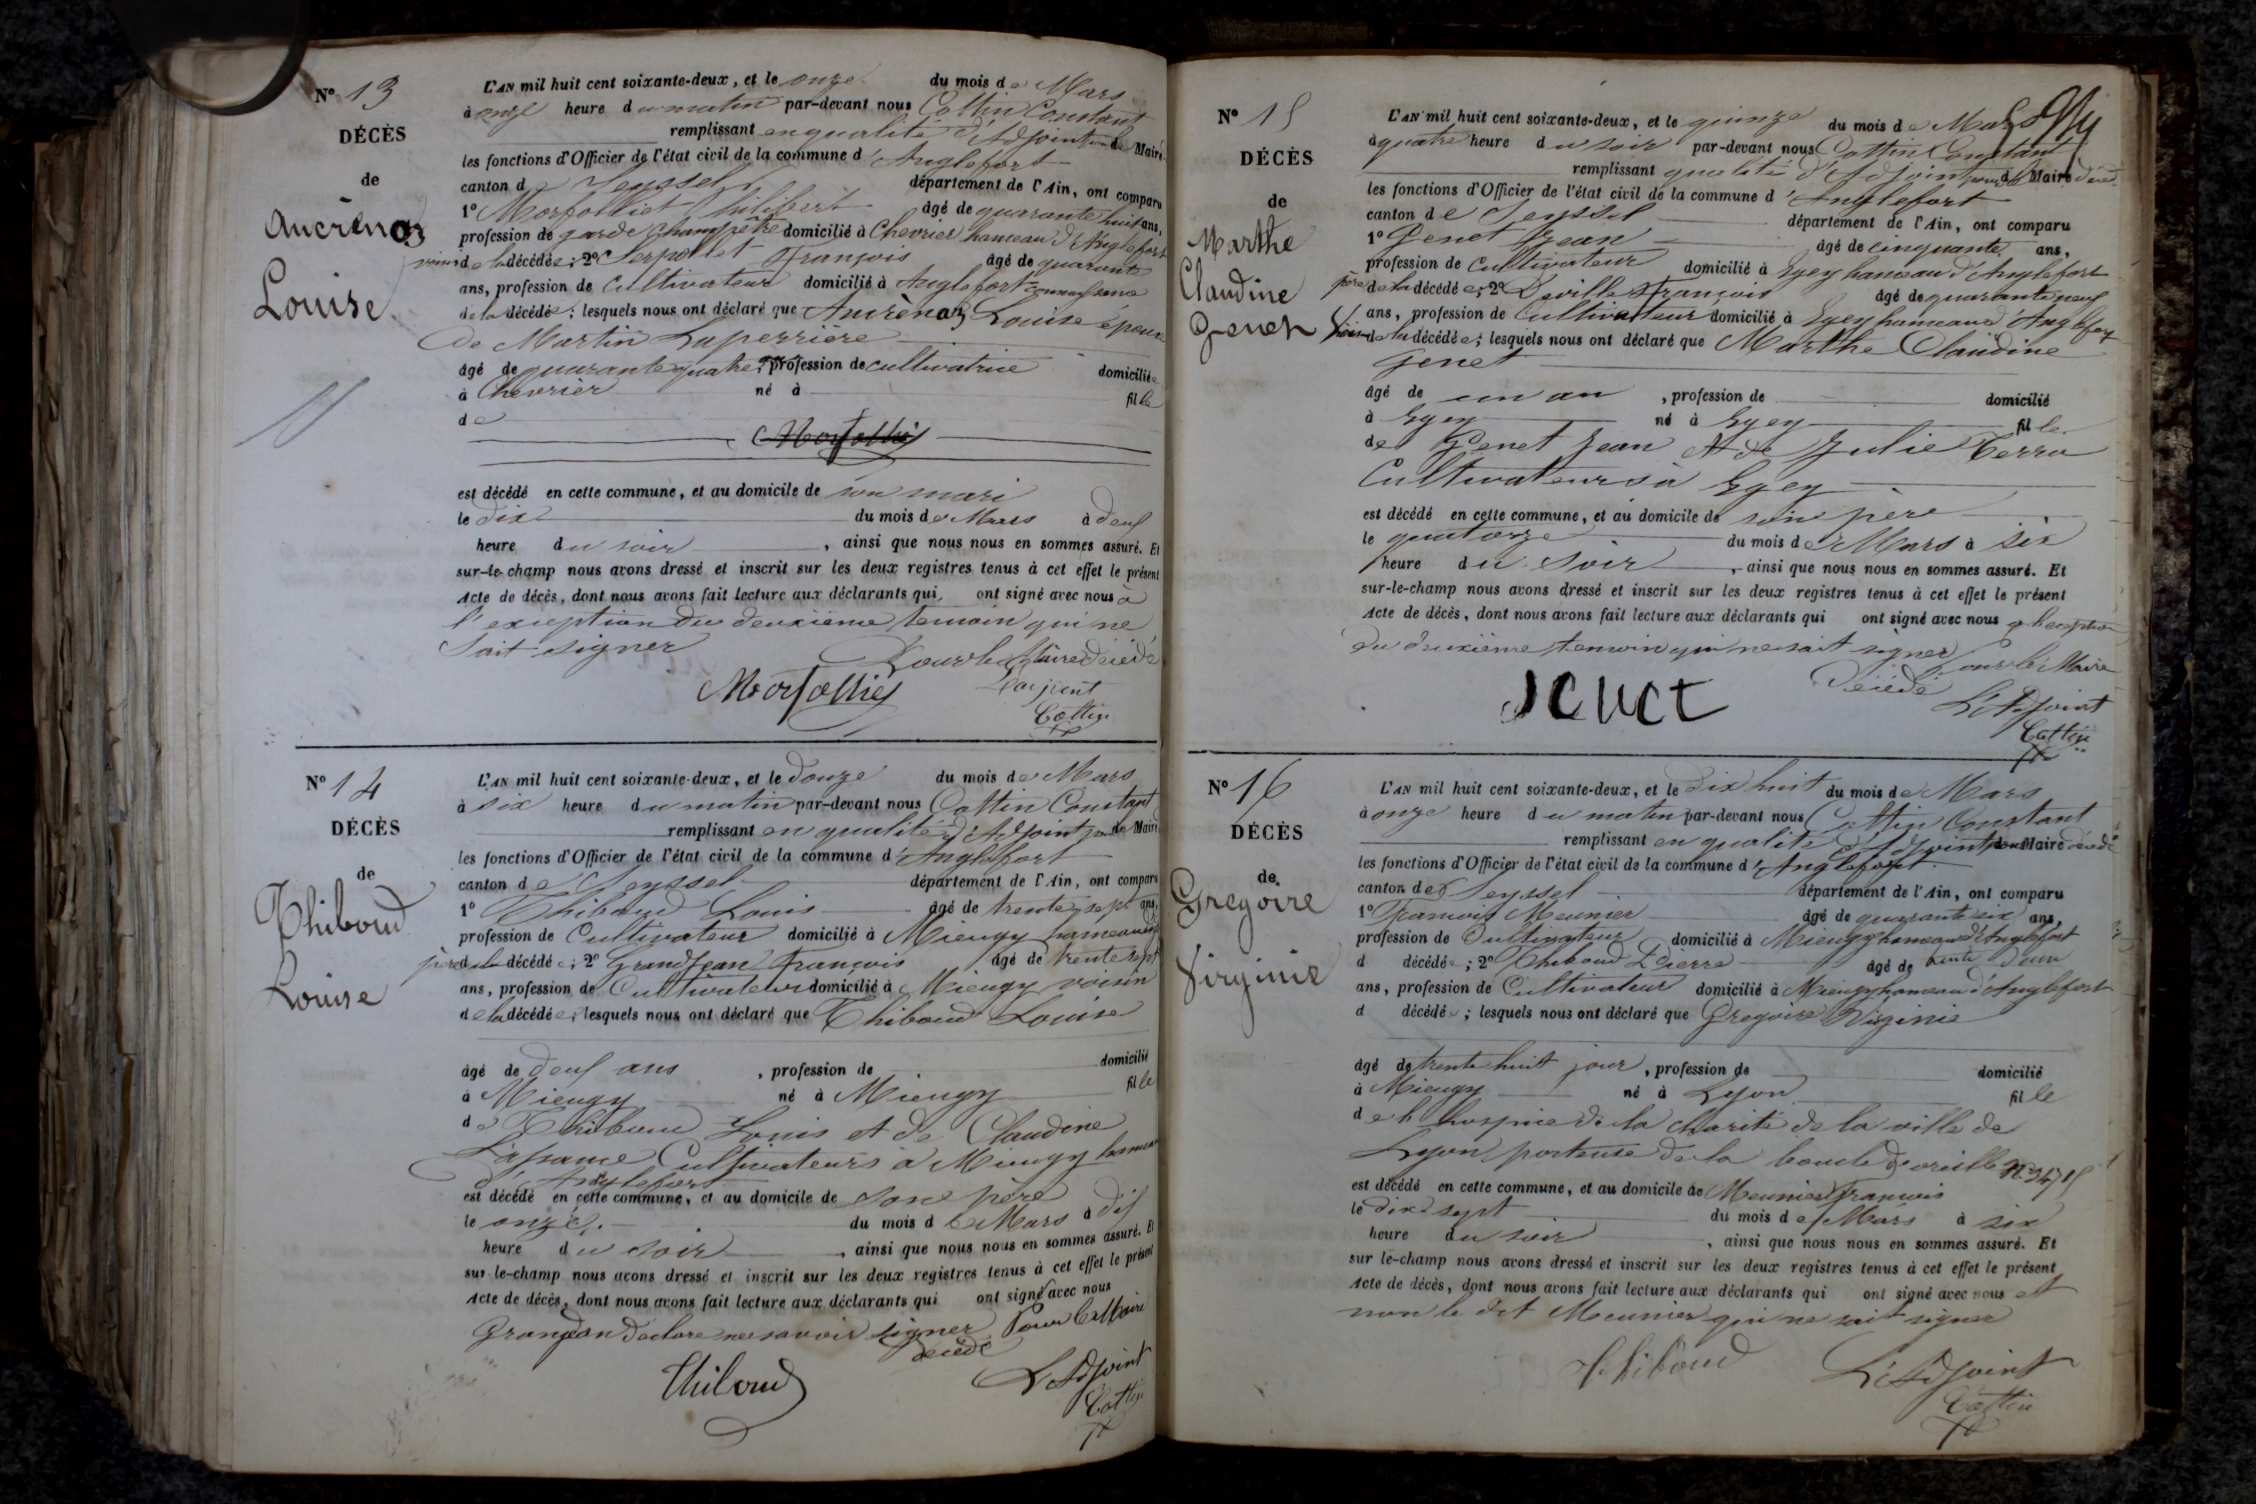 N° 13
DÉCÈS
de
Aucrènaz
Louise.
L'AN mil huit cent soixante-deux, et le onze du mois de Mars
à onze heure du matin par-devant nous Cottin Constant
remplissant en qualité d'Adjoint de Maire
les fonctions d'Officier de l'état civil de la commune d'Anglefort
canton de Seyssel département de l'Ain, ont comparu
1° Morfolliet Philibert âgé de quarante huit ans,
profession de garde champêtre domicilié à Chevrier hameau d'Anglefort
voisin de la décédée; 2° Serpollet François âgé de quarante
ans, profession de Cultivateur domicilié à Anglefort
de la décédée; lesquels nous ont déclaré que Aucrènaz Louise épouse
de Martin Laperrière
âgé de quarante quatre, profession de cultivatrice domiciliée
à Chevrier né à fille
de
est décédé en cette commune, et au domicile de son mari
le dix du mois de Mars à deux
heure du soir, ainsi que nous nous en sommes assuré. Et
sur-le-champ nous avons dressé et inscrit sur les deux registres tenus à cet effet le présent
Acte de décès, dont nous avons fait lecture aux déclarants qui ont signé avec nous à
l'exception du deuxième temoin qui ne
sait signer Pour le Maire décédé
Morfolliet L'adjoint
Cottin
N° 14
DÉCÈS
de
Thiboud
Louise
L'AN mil huit cent soixante-deux, et le douze du mois de Mars
à six heure du matin par-devant nous Cottin Constant
remplissant en qualité d'Adjoint pour le Maire
les fonctions d'Officier de l'état civil de la commune d'Anglefort
canton de Seyssel département de l'Ain, ont comparu
1° Thiboud Louis âgé de trente sept ans,
profession de Cultivateur domicilié à Mieugy hameau
père de la décédée; 2° Grandjean François âgé de trente sept
ans, profession de Cultivateur domicilié à Mieugy voisin
de la décédée; lesquels nous ont déclaré que Thiboud Louise
âgé de deux ans, profession de domicilié
à Mieugy né à Mieugy fille
de Thiboud Louis et de Claudine
Cultivateurs à Mieugy hameau
d'Anglefort
est décédé en cette commune, et au domicile de son père
le onze du mois de Mars à dix
heure du soir, ainsi que nous nous en sommes assuré. Et
sur le-champ nous avons dressé et inscrit sur les deux registres tenus à cet effet le présent
Acte de décès, dont nous avons fait lecture aux déclarants qui ont signé avec nous
Grandjean declare ne savoir signer Pour le Maire
décédé
Thiboud L'Adjoint
Cottin
N° 15
DÉCÈS
de
Marthe
Claudine
Genet
L'AN mil huit cent soixante-deux, et le quinze du mois de Mars
à quatre heure du soir par-devant nous Cottin Constant
remplissant qualité d'Adjoint pour le Maire décédé
les fonctions d'Officier de l'état civil de la commune d'Anglefort
canton de Seyssel département de l'Ain, ont comparu
1° Genet Jean âgé de cinquante ans,
profession de Cultivateur domicilié à Eyey hameau d'Anglefort
père de la décédée; 2° Deville François âgé de quarante neuf
ans, profession de Cultivateur domicilié à Eyey hameau d'Anglefort
voisin de la décédée; lesquels nous ont déclaré que Marthe Claudine
Genet
âgé de un an, profession de domicilié
à Eyey né à Eyey fille
de Genet Jean et de Julie Terra
Cultivateurs à Eyey
est décédé en cette commune, et au domicile de son père
le quatorze du mois de Mars à six
heure du soir, ainsi que nous nous en sommes assuré. Et
sur-le-champ nous avons dressé et inscrit sur les deux registres tenus à cet effet le présent
Acte de décès, dont nous avons fait lecture aux déclarants qui ont signé avec nous à l'exception
du deuxième temoin qui ne sait signer Pour le Maire
décédé
Genet L'Adjoint
Cottin
N° 16
DÉCÈS
de
Gregoire
Virginie
L'AN mil huit cent soixante-deux, et le dix huit du mois de Mars
à onze heure du matin par-devant nous Cottin Constant
remplissant en qualité d'Adjoint pour le Maire décédé
les fonctions d'Officier de l'état civil de la commune d'Anglefort
canton de Seyssel département de l'Ain, ont comparu
1° Francois Meunier âgé de quarante six ans,
profession de Cultivateur domicilié à Mieugy hameau d'Anglefort
d décédé; 2° Thiboud Pierre âgé de trente deux
ans, profession de Cultivateur domicilié à Mieugy hameau d'Anglefort
d décédé; lesquels nous ont déclaré que Gregoire Virginie
âgé de trente huit jour, profession de domicilié
à Mieugy né à Lyon fille
de l'hospice de la charité de la ville de
Lyon porteuse de la boucle d'oreille
est décédé en cette commune, et au domicile de Meunier Francois
le dix sept du mois de Mars à six
heure du soir, ainsi que nous nous en sommes assuré. Et
sur le-champ nous avons dressé et inscrit sur les deux registres tenus à cet effet le présent
Acte de décès, dont nous avons fait lecture aux déclarants qui ont signé avec nous et
non le dit Meunier qui ne sait signer
Thiboud L'Adjoint
Cottin